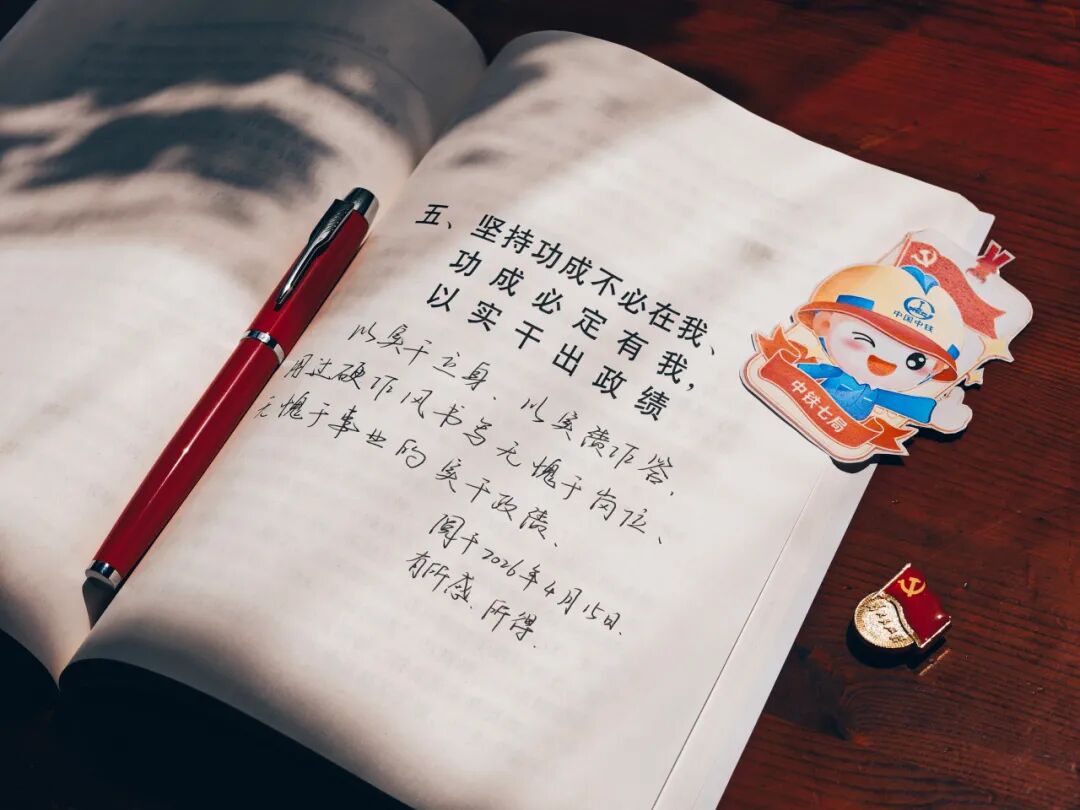 五、坚持功成不必在我、
功成必定有我，
以实干出政绩
以实干立身、以实绩作答，
用过硬作风书写无愧于岗位、
无愧于事业的实干政绩、
阅于2026年4月15日、
有所感、所得.
中国中铁
中铁七局